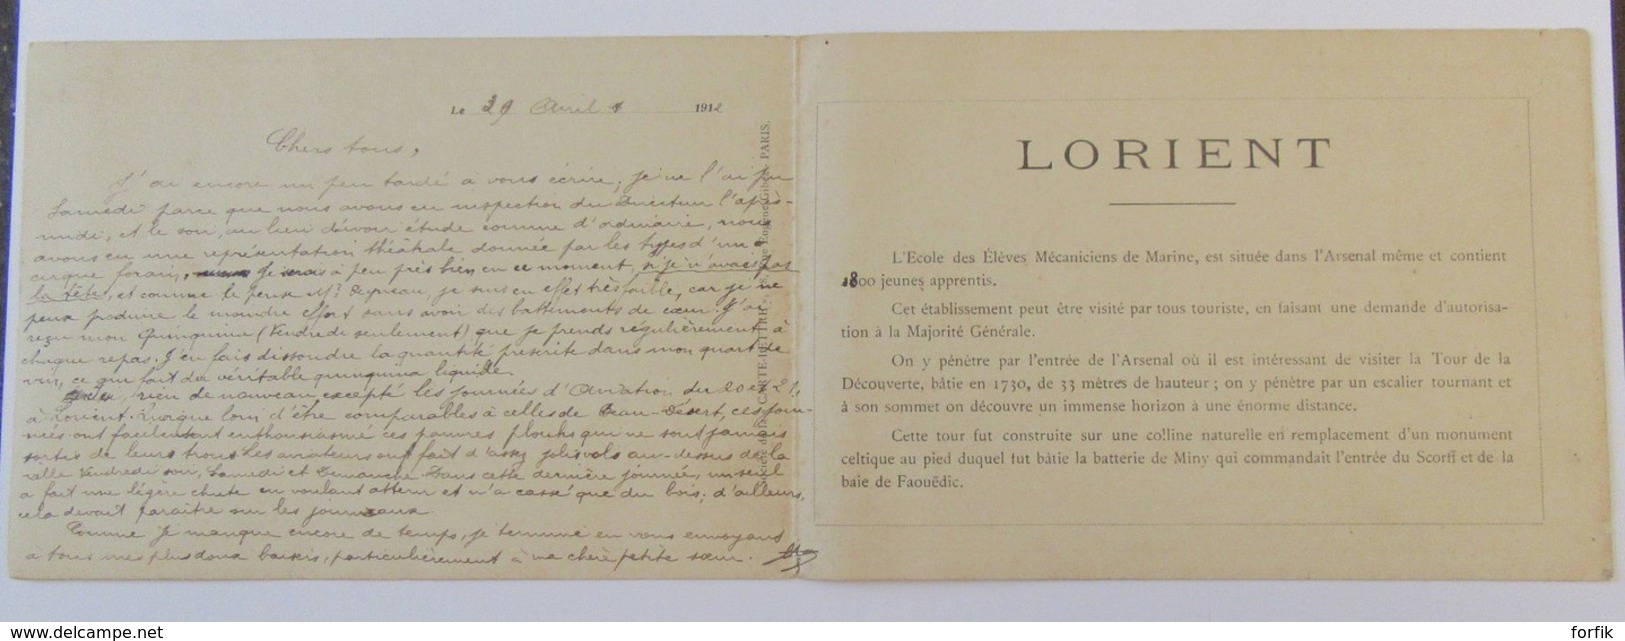 Le 29 Avril 1912
Chers tous,
J'ai encore un peu tardé à vous écrire, je ne l'ai pu
Samedi parce que nous avons eu inspection du Directeur l'après-
midi, et le soir, au lieu d'avoir étude comme d'ordinaire, nous
avons eu une représentation théâtrale donnée par les types d'un
cirque forain. Je serais à peu près bien en ce moment, si je n'avais pas
la tête, et comme le pense Mr. je suis en effet très faible, car je ne
peux produire le moindre effort sans avoir des battements de cœur. J'ai
reçu mon Quinquina (Vendredi seulement) que je prends régulièrement à
chaque repas. J'en fais dissoudre la quantité prescrite dans mon quart de
vin, ce qui fait du véritable quinquina liquide.
rien de nouveau excepté les journées d'Aviation du 20 et 21,
à Lorient. Quoique loin d'être comparables à celles de Beau-Désert, ces jour-
nées ont facilement enthousiasmé ces pauvres plouks qui ne sont jamais
sortis de leurs trous. Les aviateurs ont fait d'assez jolis vols au-dessus de la
ville Vendredi soir, Samedi et Dimanche. Dans cette dernière journée, un seul
a fait une légère chute en voulant atterrir et n'a cassé que du bois; d'ailleurs,
cela devait paraître sur les journaux.
Comme je manque encore de temps, je termine en vous envoyant
à tous mes plus doux baisers, particulièrement à ma chère petite sœur.
CARTE-LETTRE Rue Eugène-Gibez, PARIS.
LORIENT
L'Ecole des Élèves Mécaniciens de Marine, est située dans l'Arsenal même et contient
1800 jeunes apprentis.
Cet établissement peut être visité par tous touriste, en faisant une demande d'autorisa-
tion à la Majorité Générale.
On y pénètre par l'entrée de l'Arsenal où il est intéressant de visiter la Tour de la
Découverte, bâtie en 1730, de 33 mètres de hauteur ; on y pénètre par un escalier tournant et
à son sommet on découvre un immense horizon à une énorme distance.
Cette tour fut construite sur une colline naturelle en remplacement d'un monument
celtique au pied duquel fut bâtie la batterie de Miny qui commandait l'entrée du Scorff et de la
baie de Faouëdic.
delcampe.net
forfik